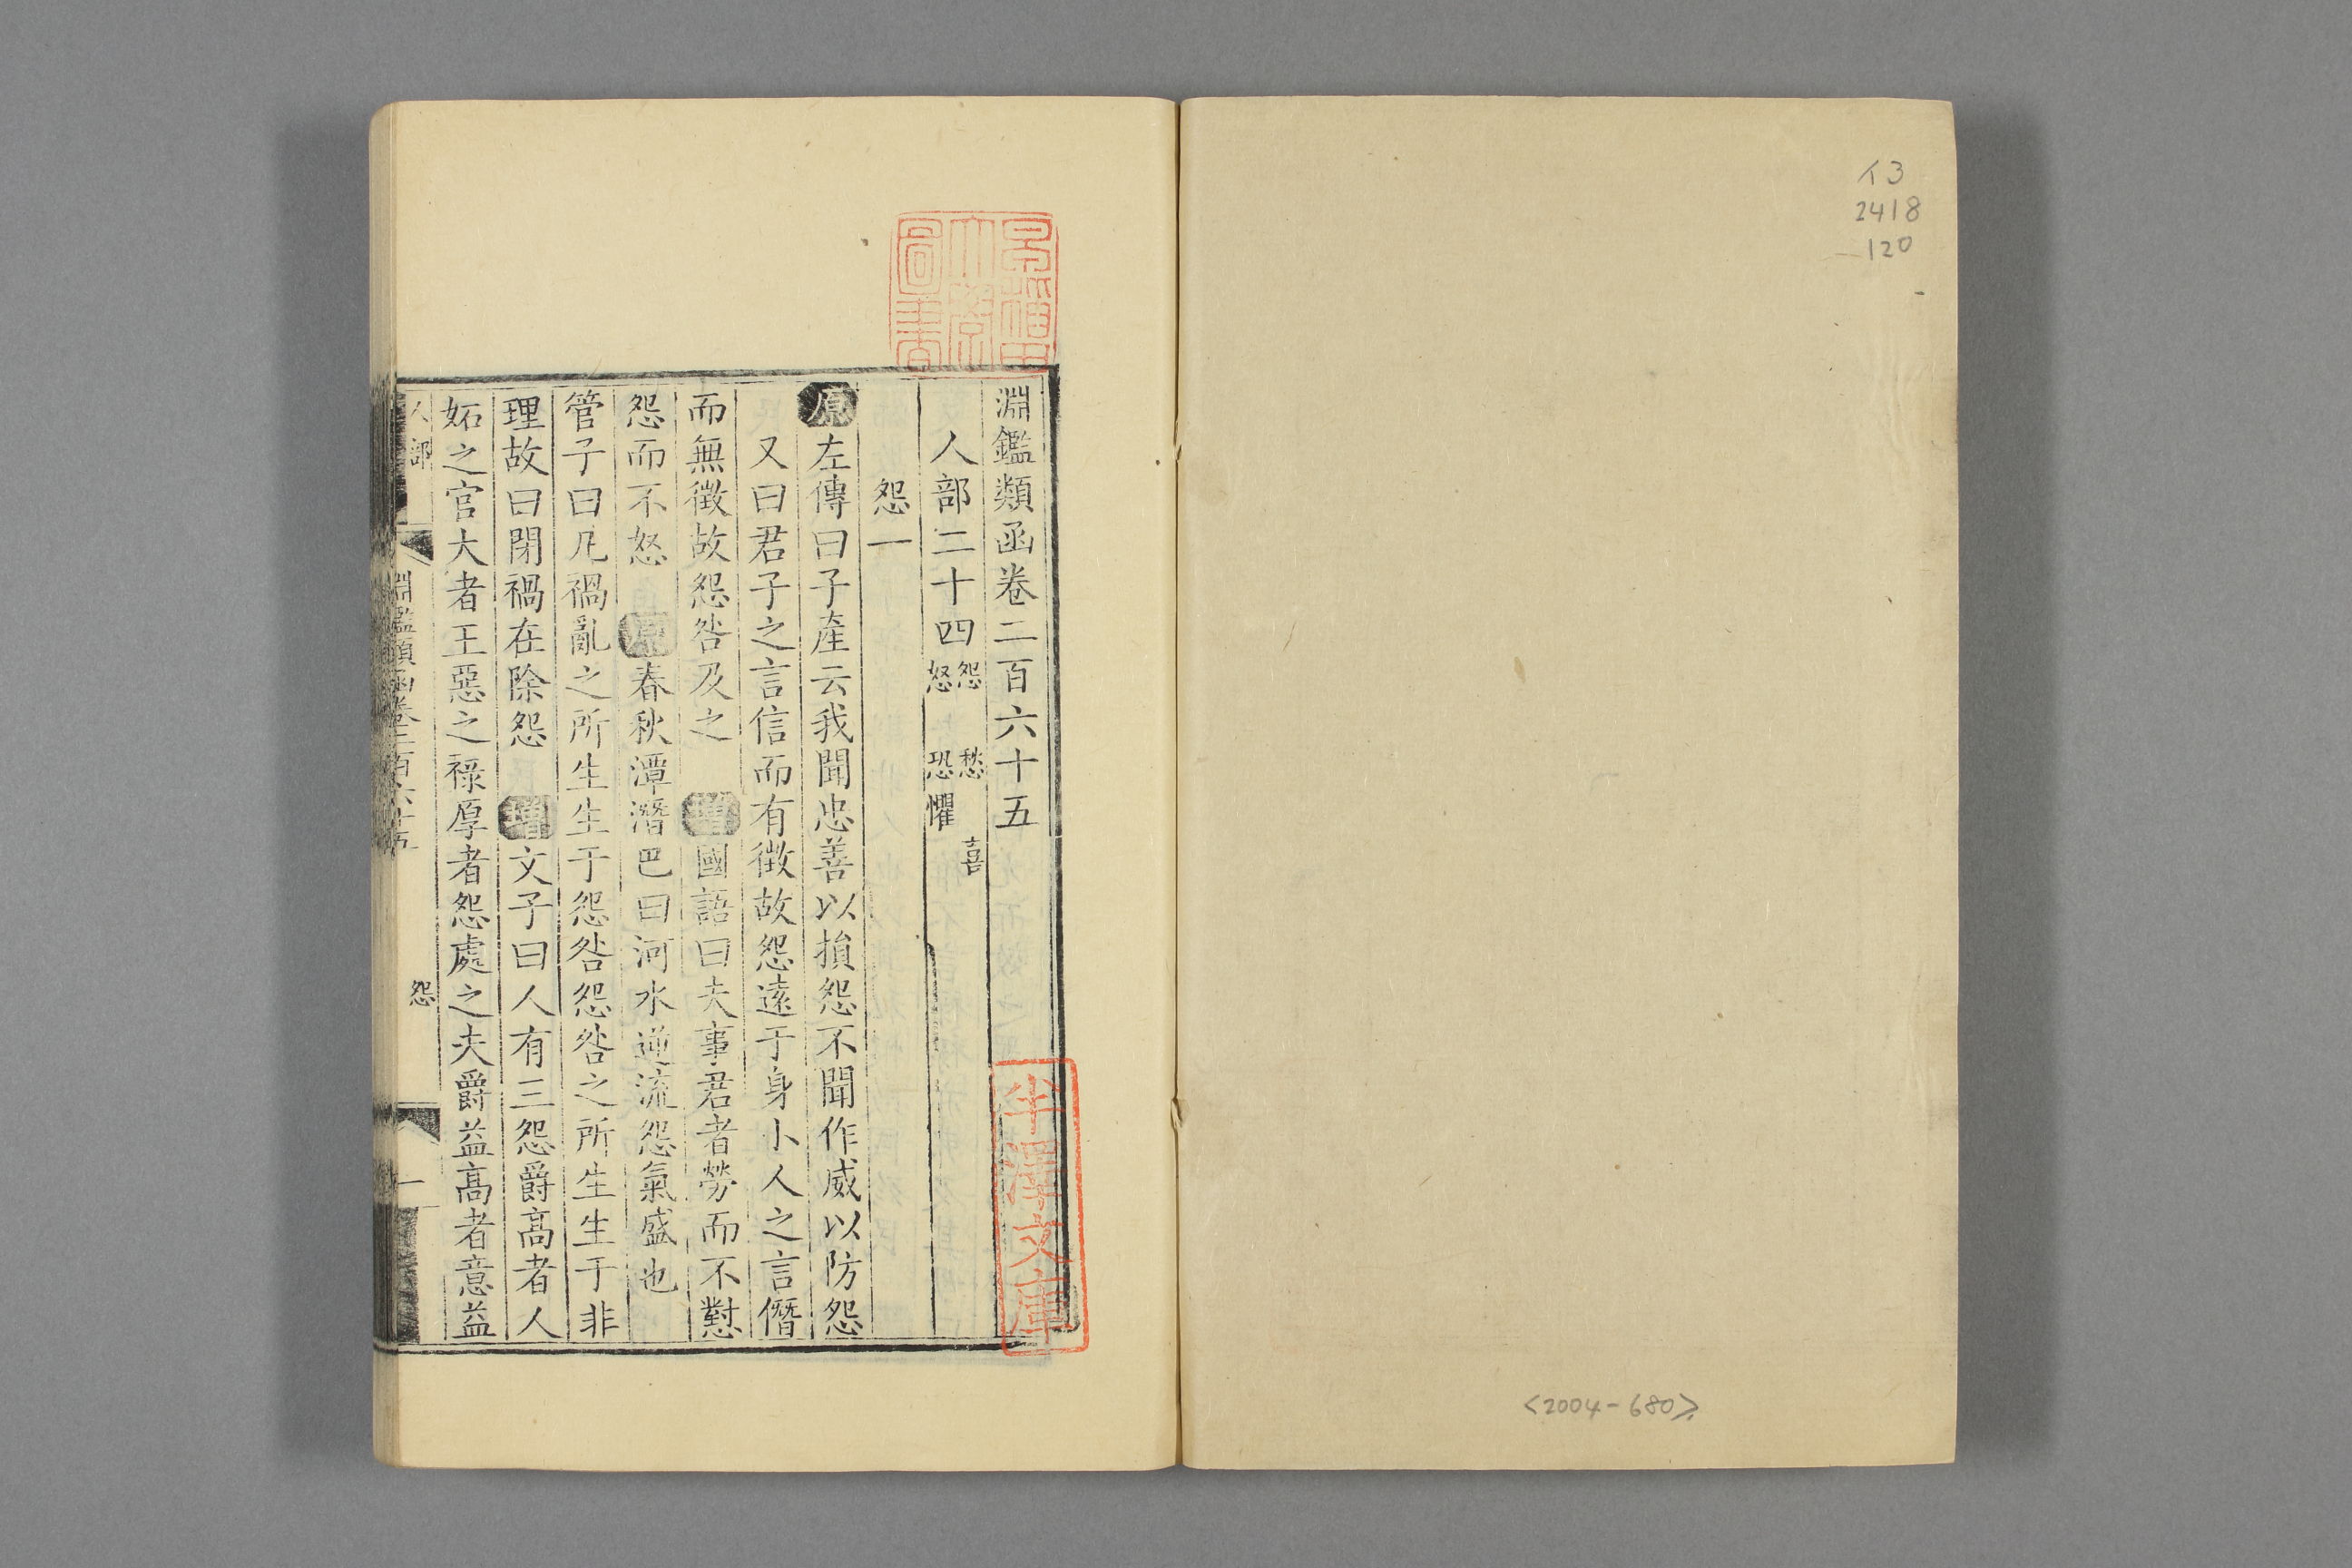 イ3
2418
120
<2004-680>
淵鑑類函卷二百六十五
人部二十四 怨 愁 喜 怒 恐懼
怨一
原 左傳曰子產云我聞忠善以損怨不聞作威以防怨
又曰君子之言信而有徵故怨遠于身小人之言僭
而無徵故怨咎及之 增 國語曰夫事君者勞而不懟
怨而不怒 原 春秋潭潛巴曰河水逆流怨氣盛也
管子曰凡禍亂之所生生于怨咎怨咎之所生生于非
理故曰閉禍在除怨 增 文子曰人有三怨爵高者人
妬之官大者王惡之祿厚者怨處之夫爵益高者意益
人部 淵鑑類函卷二百六十五 怨 一
半澤文庫